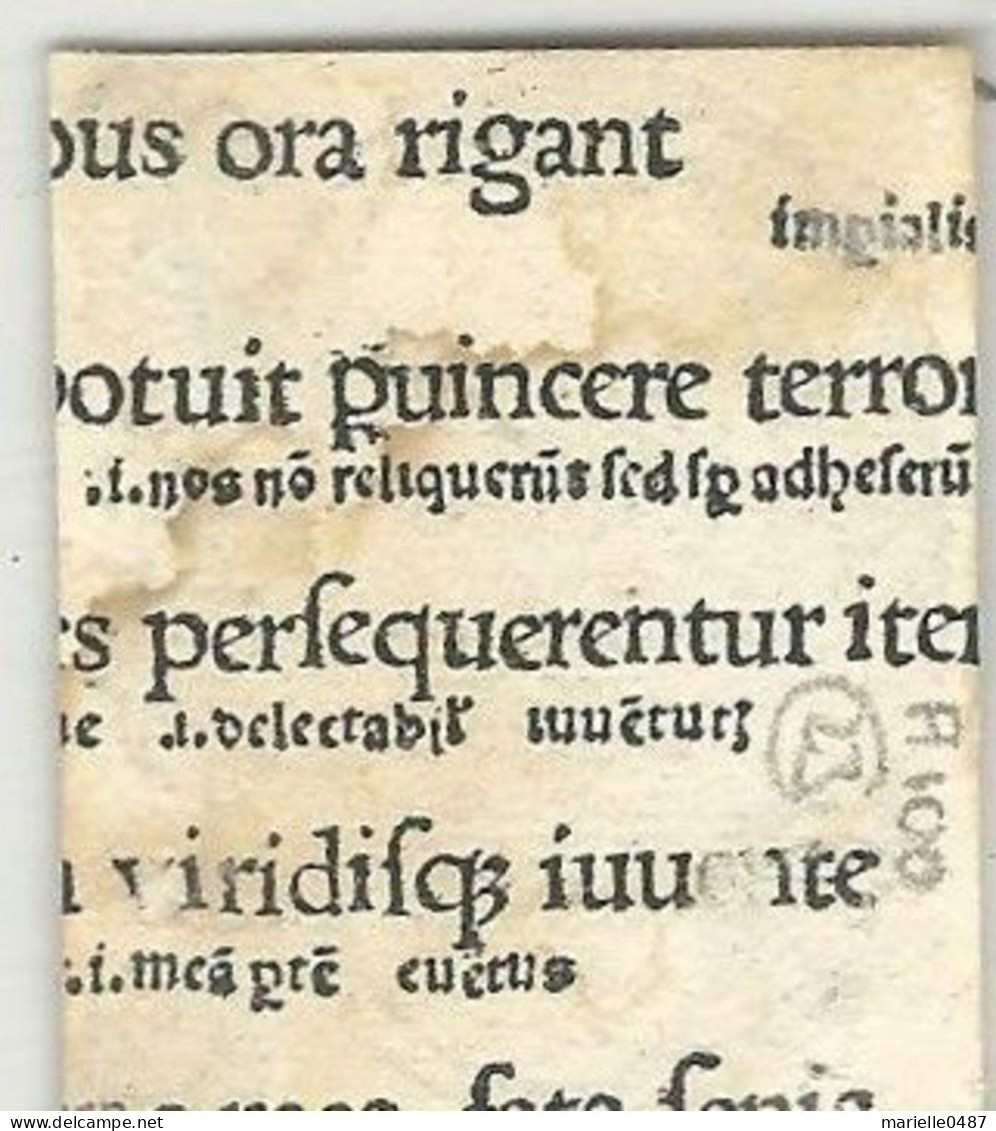 bus ora rigant
potuit ꝑuincere terror
.i. nos nō reliquerūt sed sꝑ adheserū
rs perſequerentur iter
ue .i. delectabil' iuuētutꝫ
viridiſqꝫ iuuente
.i. meā ꝑtē euētus
mea fata ſenis
marielle0487